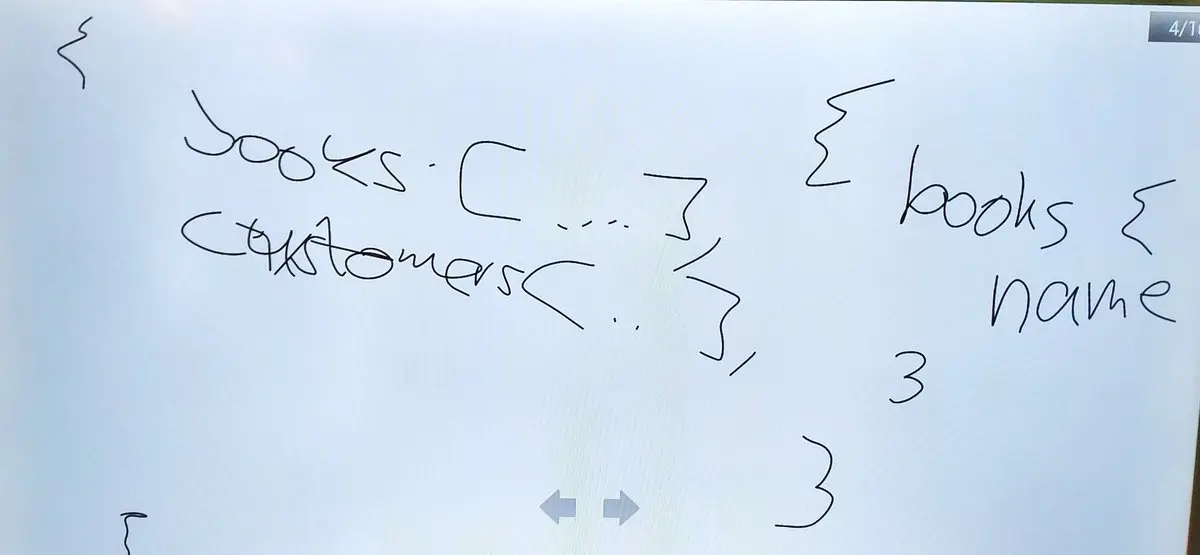 {
books: [ .... ],
customers [ .. ],
{
books {
name
}
}
4/1